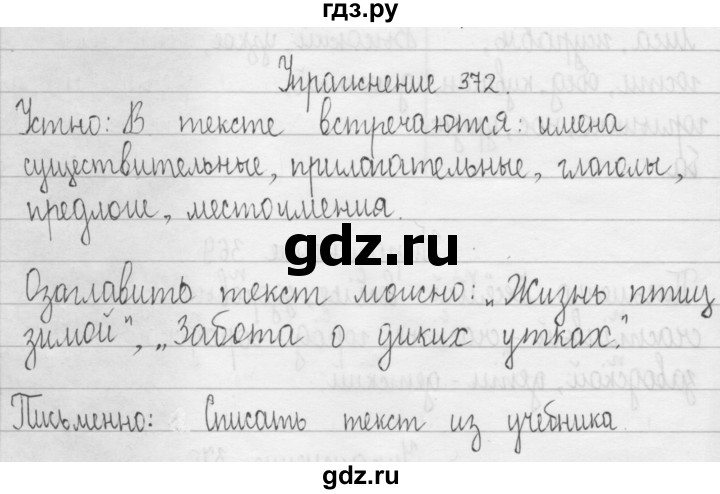 гдз.ру
Упражнение 372.
Устно: В тексте встречаются: имена
существительные, прилагательные, глаголы,
предлоги, местоимения.
gdz.ru
Озаглавить текст можно: „Жизнь птиц
зимой", „Забота о диких утках".
Письменно: Списать текст из учебника.
gdz.ru